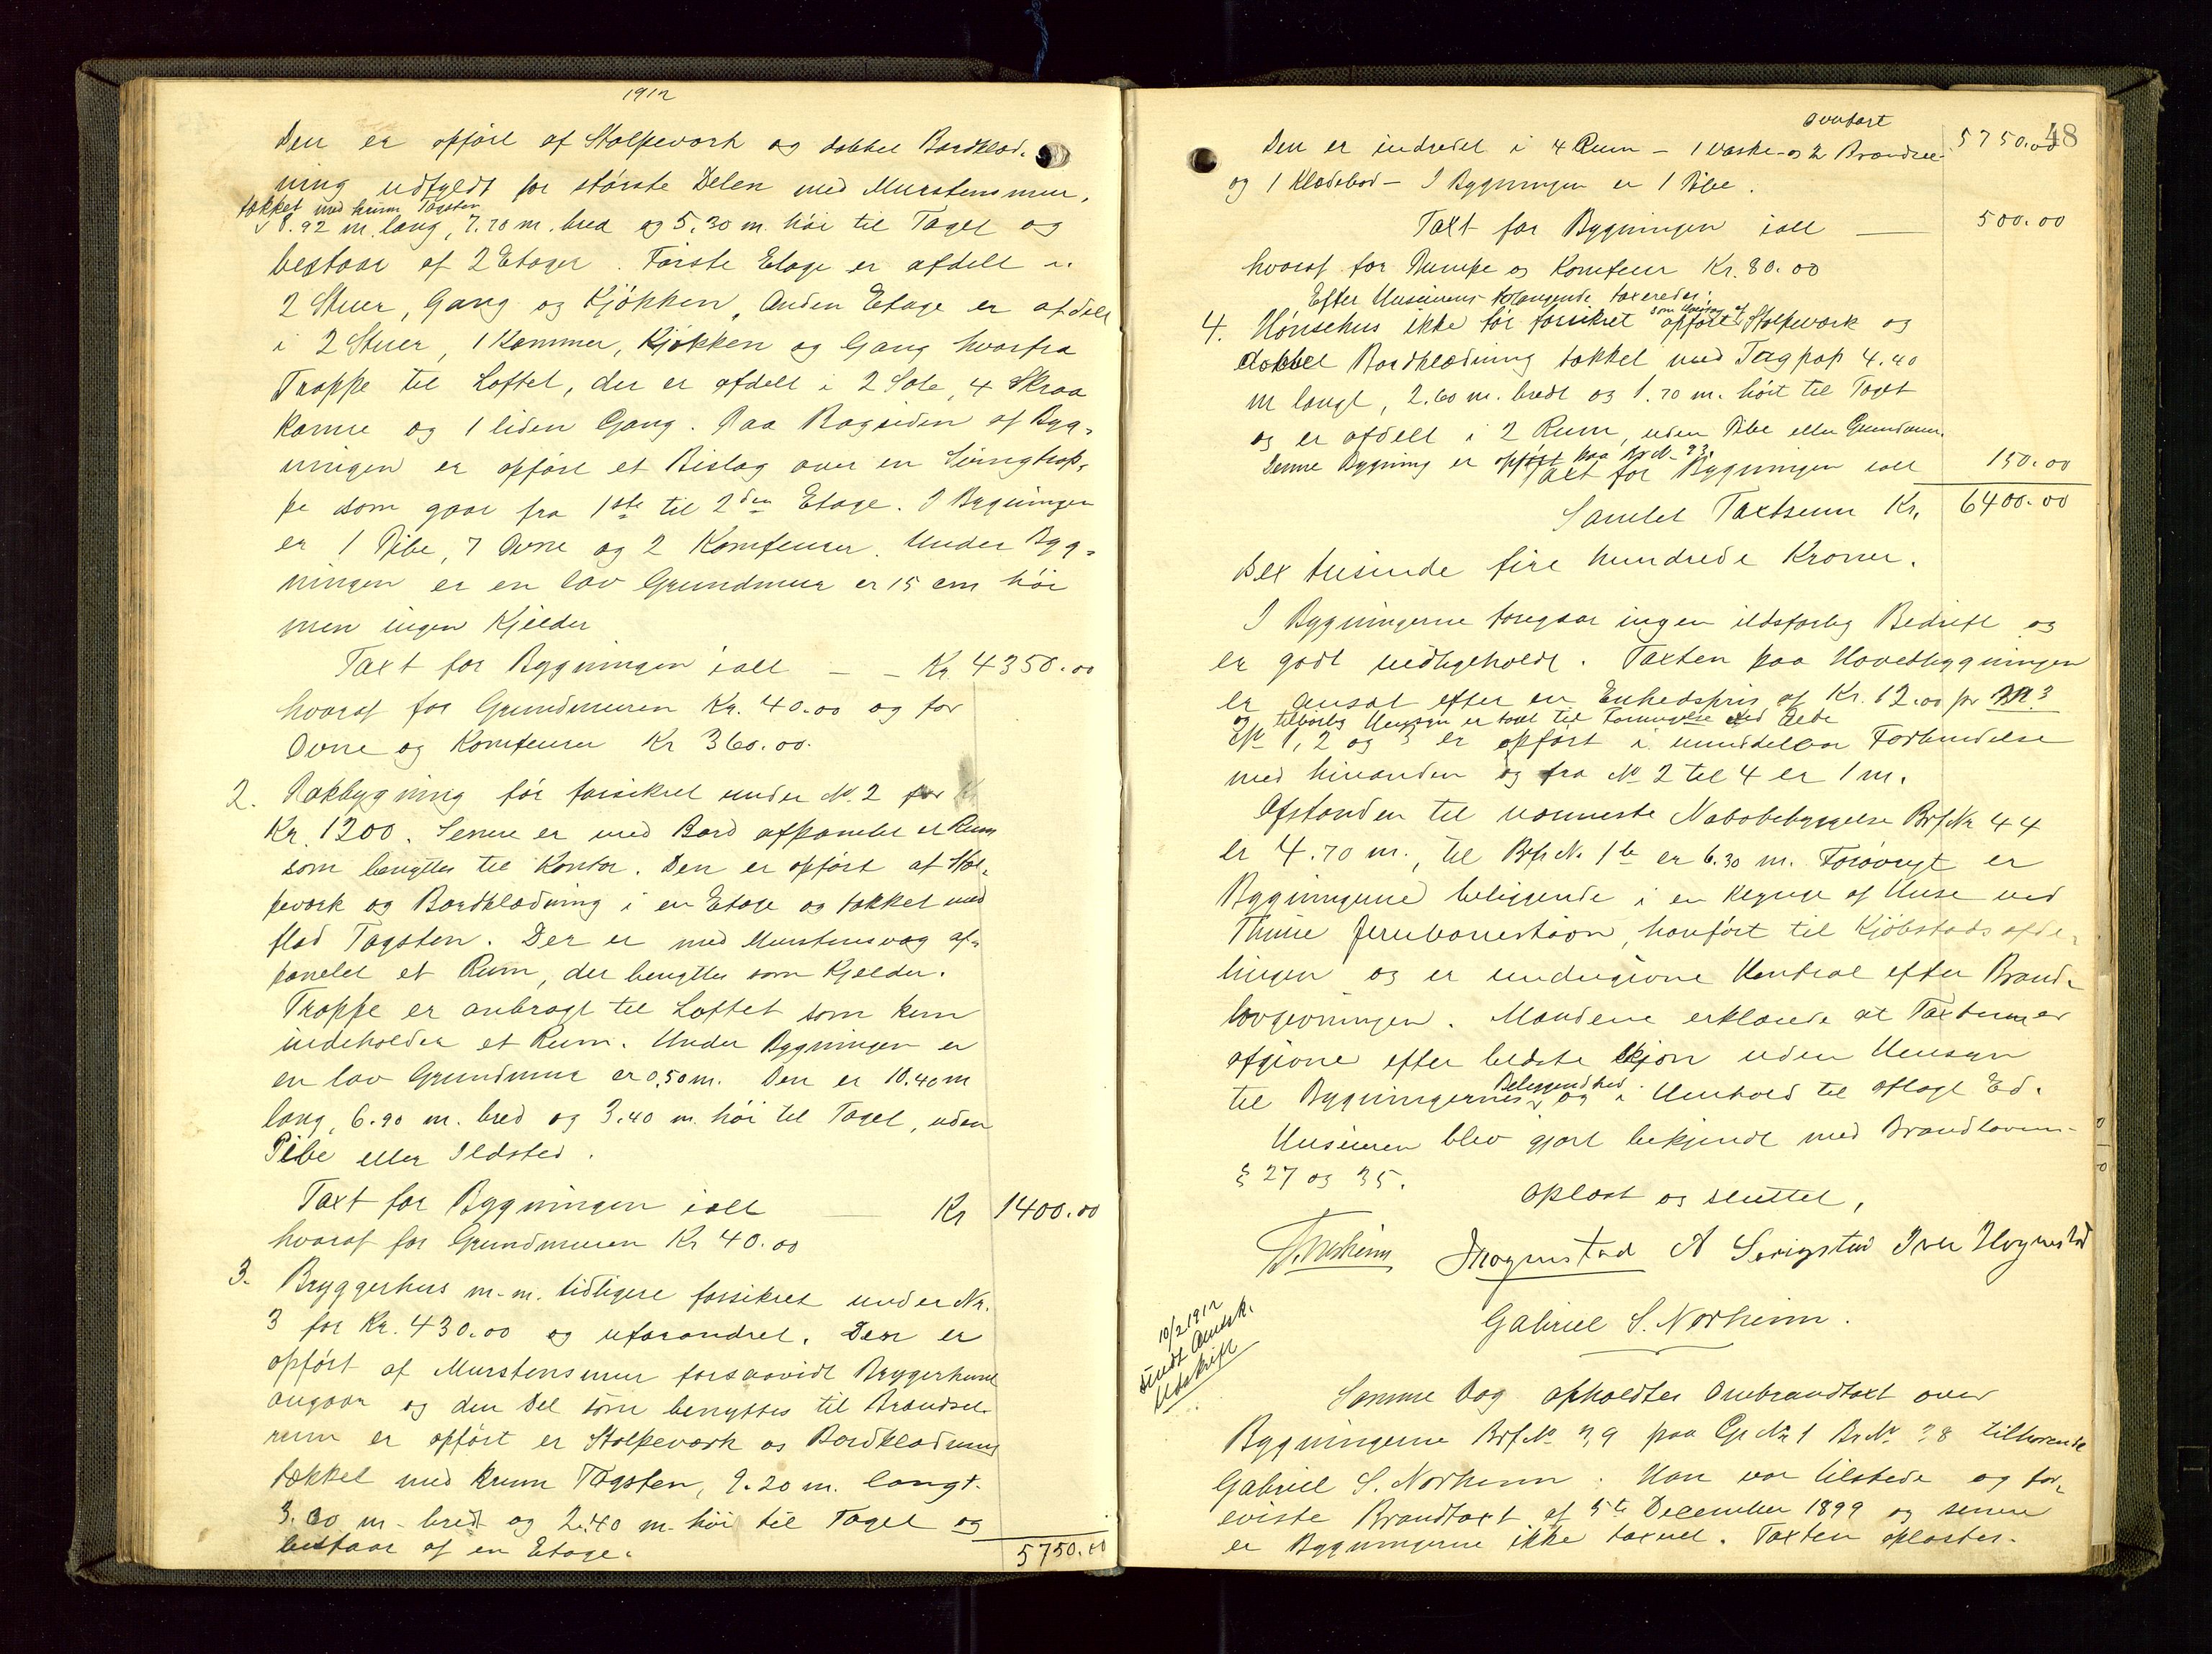 1912
Den er opført af Stolpeværk og dobbel Bordklæd-
ning udfyldt for største Delen med Murstensmur,
tækket med krum Tagsten
8.92 m. lang, 7.70 m. bred og 5.30 m. høi til Taget og
bestaar af 2 Etager. Første Etage er afdelt i
2 Stuer, Gang og Kjøkken, Anden Etage er afdelt
i 2 Stuer, 1 Kammer, Kjøkken og Gang hvorfra
Trappe til Loftet, der er afdelt i 2 Sale, 4 Skraa
kamre og 1 liden Gang. Paa Bagsiden af Byg-
ningen er opført et Bislag over en Svingtrap-
pe som gaar fra 1ste til 2den Etage. I Bygningen
er 1 Pibe, 7 Ovne og 2 Komfeurer. Under Byg-
ningen er en lav Grundmur er 15 cm høi
men ingen Kjelder
Taxt for Bygningen ialt — Kr 4350.00
hvoraf for Grundmuren Kr. 40.00 og for
Ovne og Komfeurer Kr 360.00.
2. Pakbygning før forsikret under No. 2 for
Kr. 1200. Senere er med Bord afpanelet et Rum
som benyttes til Kontor. Den er opført af Stol-
peværk og Bordklædning i en Etage og tækket med
flad Tagsten. Der er med Murstensvæg af-
panelet et Rum, der benyttes som Kjelder.
Trappe er anbragt til Loftet som kun
indeholder et Rum. Under Bygningen er
en lav Grundmur er 0,50 m. Den er 10.40 m
lang, 6.90 m. bred og 3.40 m. høi til Taget, uden
Pibe eller Ildsted.
Taxt for Bygningen ialt — Kr 1400.00
hvoraf for Grundmuren Kr 40.00
3. Bryggerhus m.m. tidligere forsikret under Nr.
3 for Kr. 430.00 og uforandret. Den er
opført af Murstensmur forsaavidt Bryggerhuset
angaar og den Del som benyttes til Brændsel-
rum er opført er Stolpeværk og Bordklædning
tækket med krum Tagsten, 9.20 m. langt.
3.00 m. bredt og 2.40 m. høi til Taget og
bestaar af en Etage.
5750.00
48
Overført 5750.00
Den er indredet i 4 Rum – 1 Vaske- og 2 Brændsel-
og 1 Klædebod – I Bygningen er 1 Pibe.
Taxt for Bygningen ialt — 500.00
hvoraf for Pumpe og Komfeur Kr. 80.00
Efter Huseierens Forlangende taxeredes:
4. Hønsehus ikke før forsikret opført af Stolpeværk og
dobbel Bordklædning tækket med Tagpap 4.40
m langt, 2.60 m. bredt og 1.70 m. høit til Taget
og er afdelt i 2 Rum, uden Pibe eller Grundmur.
Denne Bygning er opført paa Br No. 23.
Taxt for Bygningen ialt 150.00
Samlet Taxtsum Kr. 6400.00
Sex tusinde fire hundrede Kroner.
I Bygningerne foregaar ingen ildsfarlig Bedrift og
er godt vedligeholdt. Taxten paa Hovedbygningen
er ansat efter en Enhedspris af Kr. 12.00 pr M3
og tilbørlig Hensyn er taget til Forringelse ved Ælde
No 1, 2 og 3 er opført i umiddelbar Forbindelse
med hinanden og fra No 2 til 4 er 1 m.
Afstanden til nærmeste Nabobebyggelse Brf Nr 44
er 4.70 m., til Brf. No. 1 b er 6.30 m. Forøvrigt er
Bygningerne beliggende i en Klynge af Huse ved
Thime Jernbanestation, henført til Kjøbstadsafde-
lingen og er undergivne Kontrol efter Brand-
lovgivningen. Mændene erklærede at Taxterne er
afgivne efter bedste Skjøn uden Hensyn
til Bygningernes Beliggendhed og i Henhold til aflagt Ed.
Huseieren blev gjort bekjendt med Brandlovens
§ 27 og 35.
Oplæst og sluttet,
A Serigstad Iver Hognestad
Gabriel S. Norheim.
10/2 1912
sendt Amtsk.
Udskrift
Samme Dag afholdtes Ombrandtaxt over
Bygningerne Brf. No 39 paa Gr Nr 1 Br No 38 tilhørende
Gabriel S. Norheim. Han var tilstede og for-
eviste Brandtaxt af 5te December 1899 og senere
er Bygningerne ikke taxeret. Taxten oplæstes.